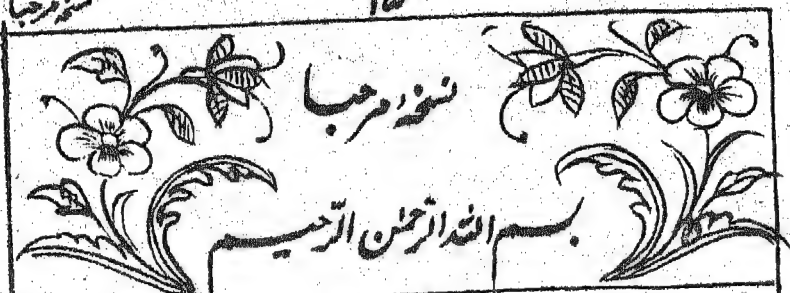 نسخهٔ مرحبا
نسخهٔ مرحبا
بسم الله الرحمن الرحیم